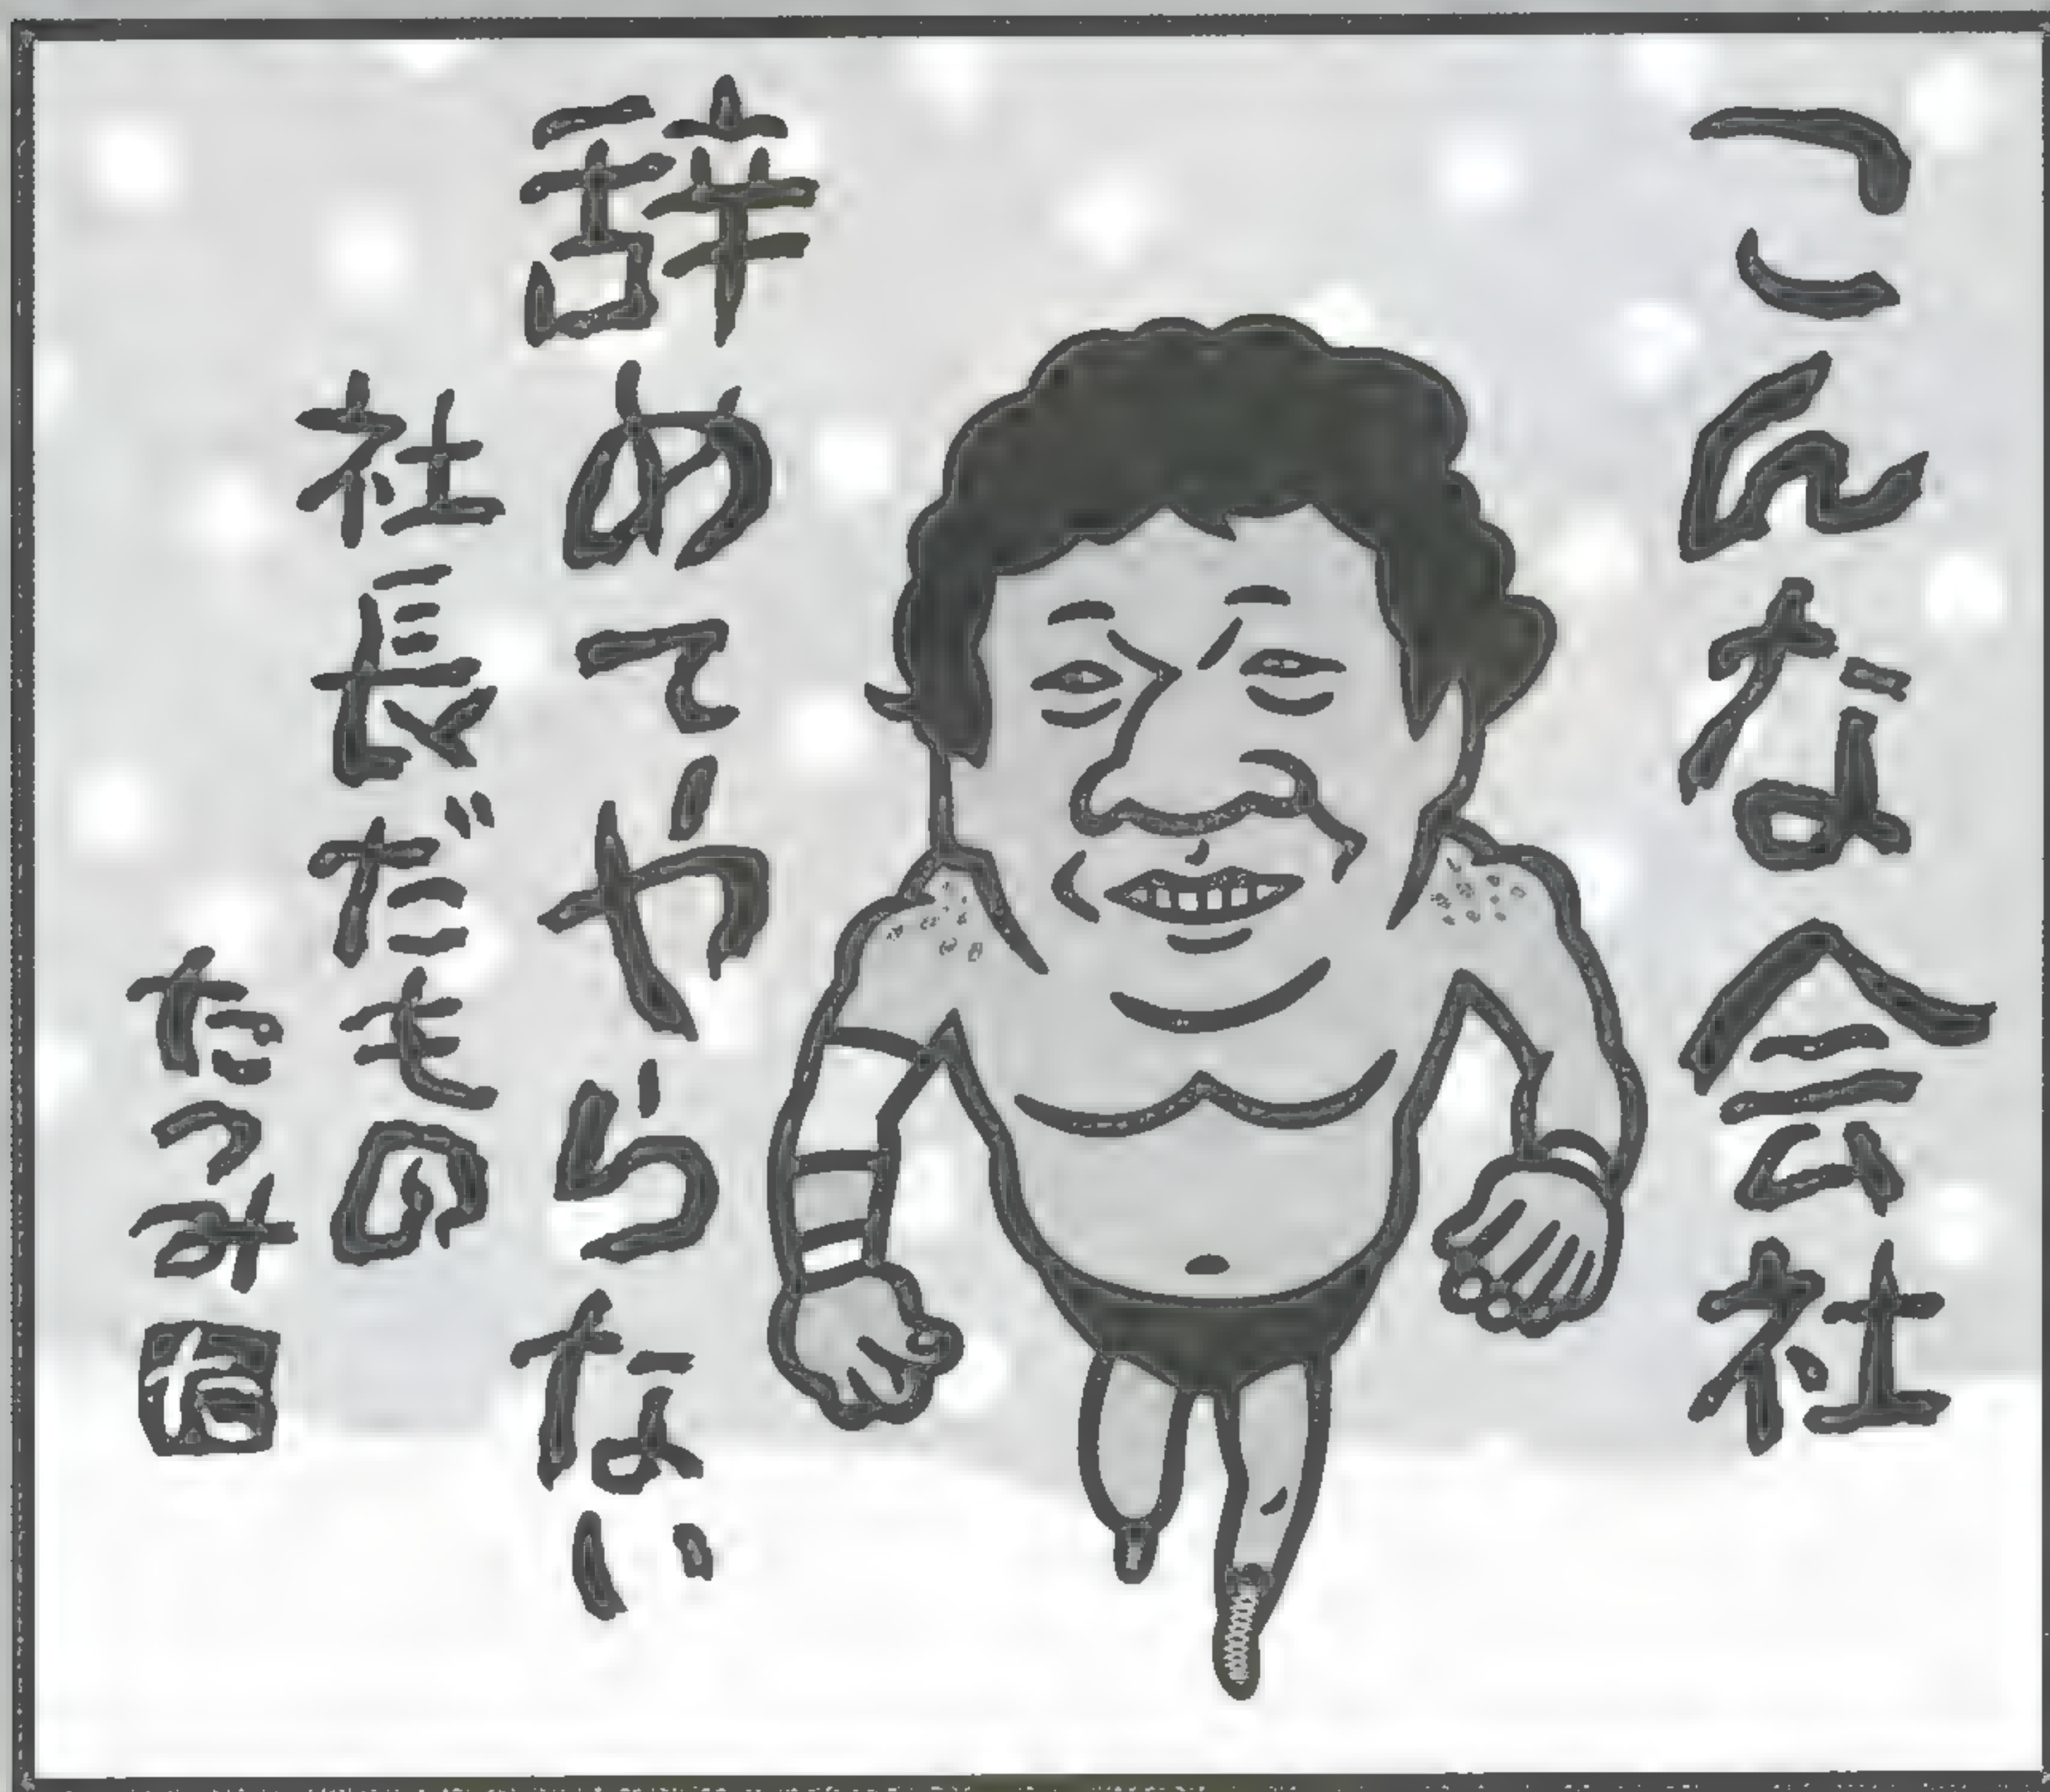 こんな会社
辞めてやらない
社長だもの
たつみ